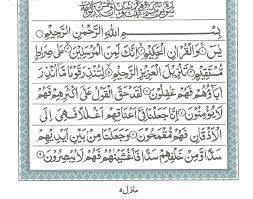 بِسْمِ اللهِ الرَّحْمٰنِ الرَّحِيْمِ
يٰسٓ وَالْقُرْاٰنِ الْحَكِيْمِ اِنَّكَ لَمِنَ الْمُرْسَلِيْنَ عَلٰى صِرَاطٍ
مُّسْتَقِيْمٍ تَنْزِيْلَ الْعَزِيْزِ الرَّحِيْمِ لِتُنْذِرَ قَوْمًا مَّآ اُنْذِرَ
اٰبَآؤُهُمْ فَهُمْ غٰفِلُوْنَ لَقَدْ حَقَّ الْقَوْلُ عَلٰٓى اَكْثَرِهِمْ فَهُمْ
لَا يُؤْمِنُوْنَ اِنَّا جَعَلْنَا فِيْٓ اَعْنَاقِهِمْ اَغْلٰلًا فَهِيَ اِلَى
الْاَذْقَانِ فَهُمْ مُّقْمَحُوْنَ وَجَعَلْنَا مِنْۢ بَيْنِ اَيْدِيْهِمْ
سَدًّا وَّمِنْ خَلْفِهِمْ سَدًّا فَاَغْشَيْنٰهُمْ فَهُمْ لَا يُبْصِرُوْنَ
منزل ٥